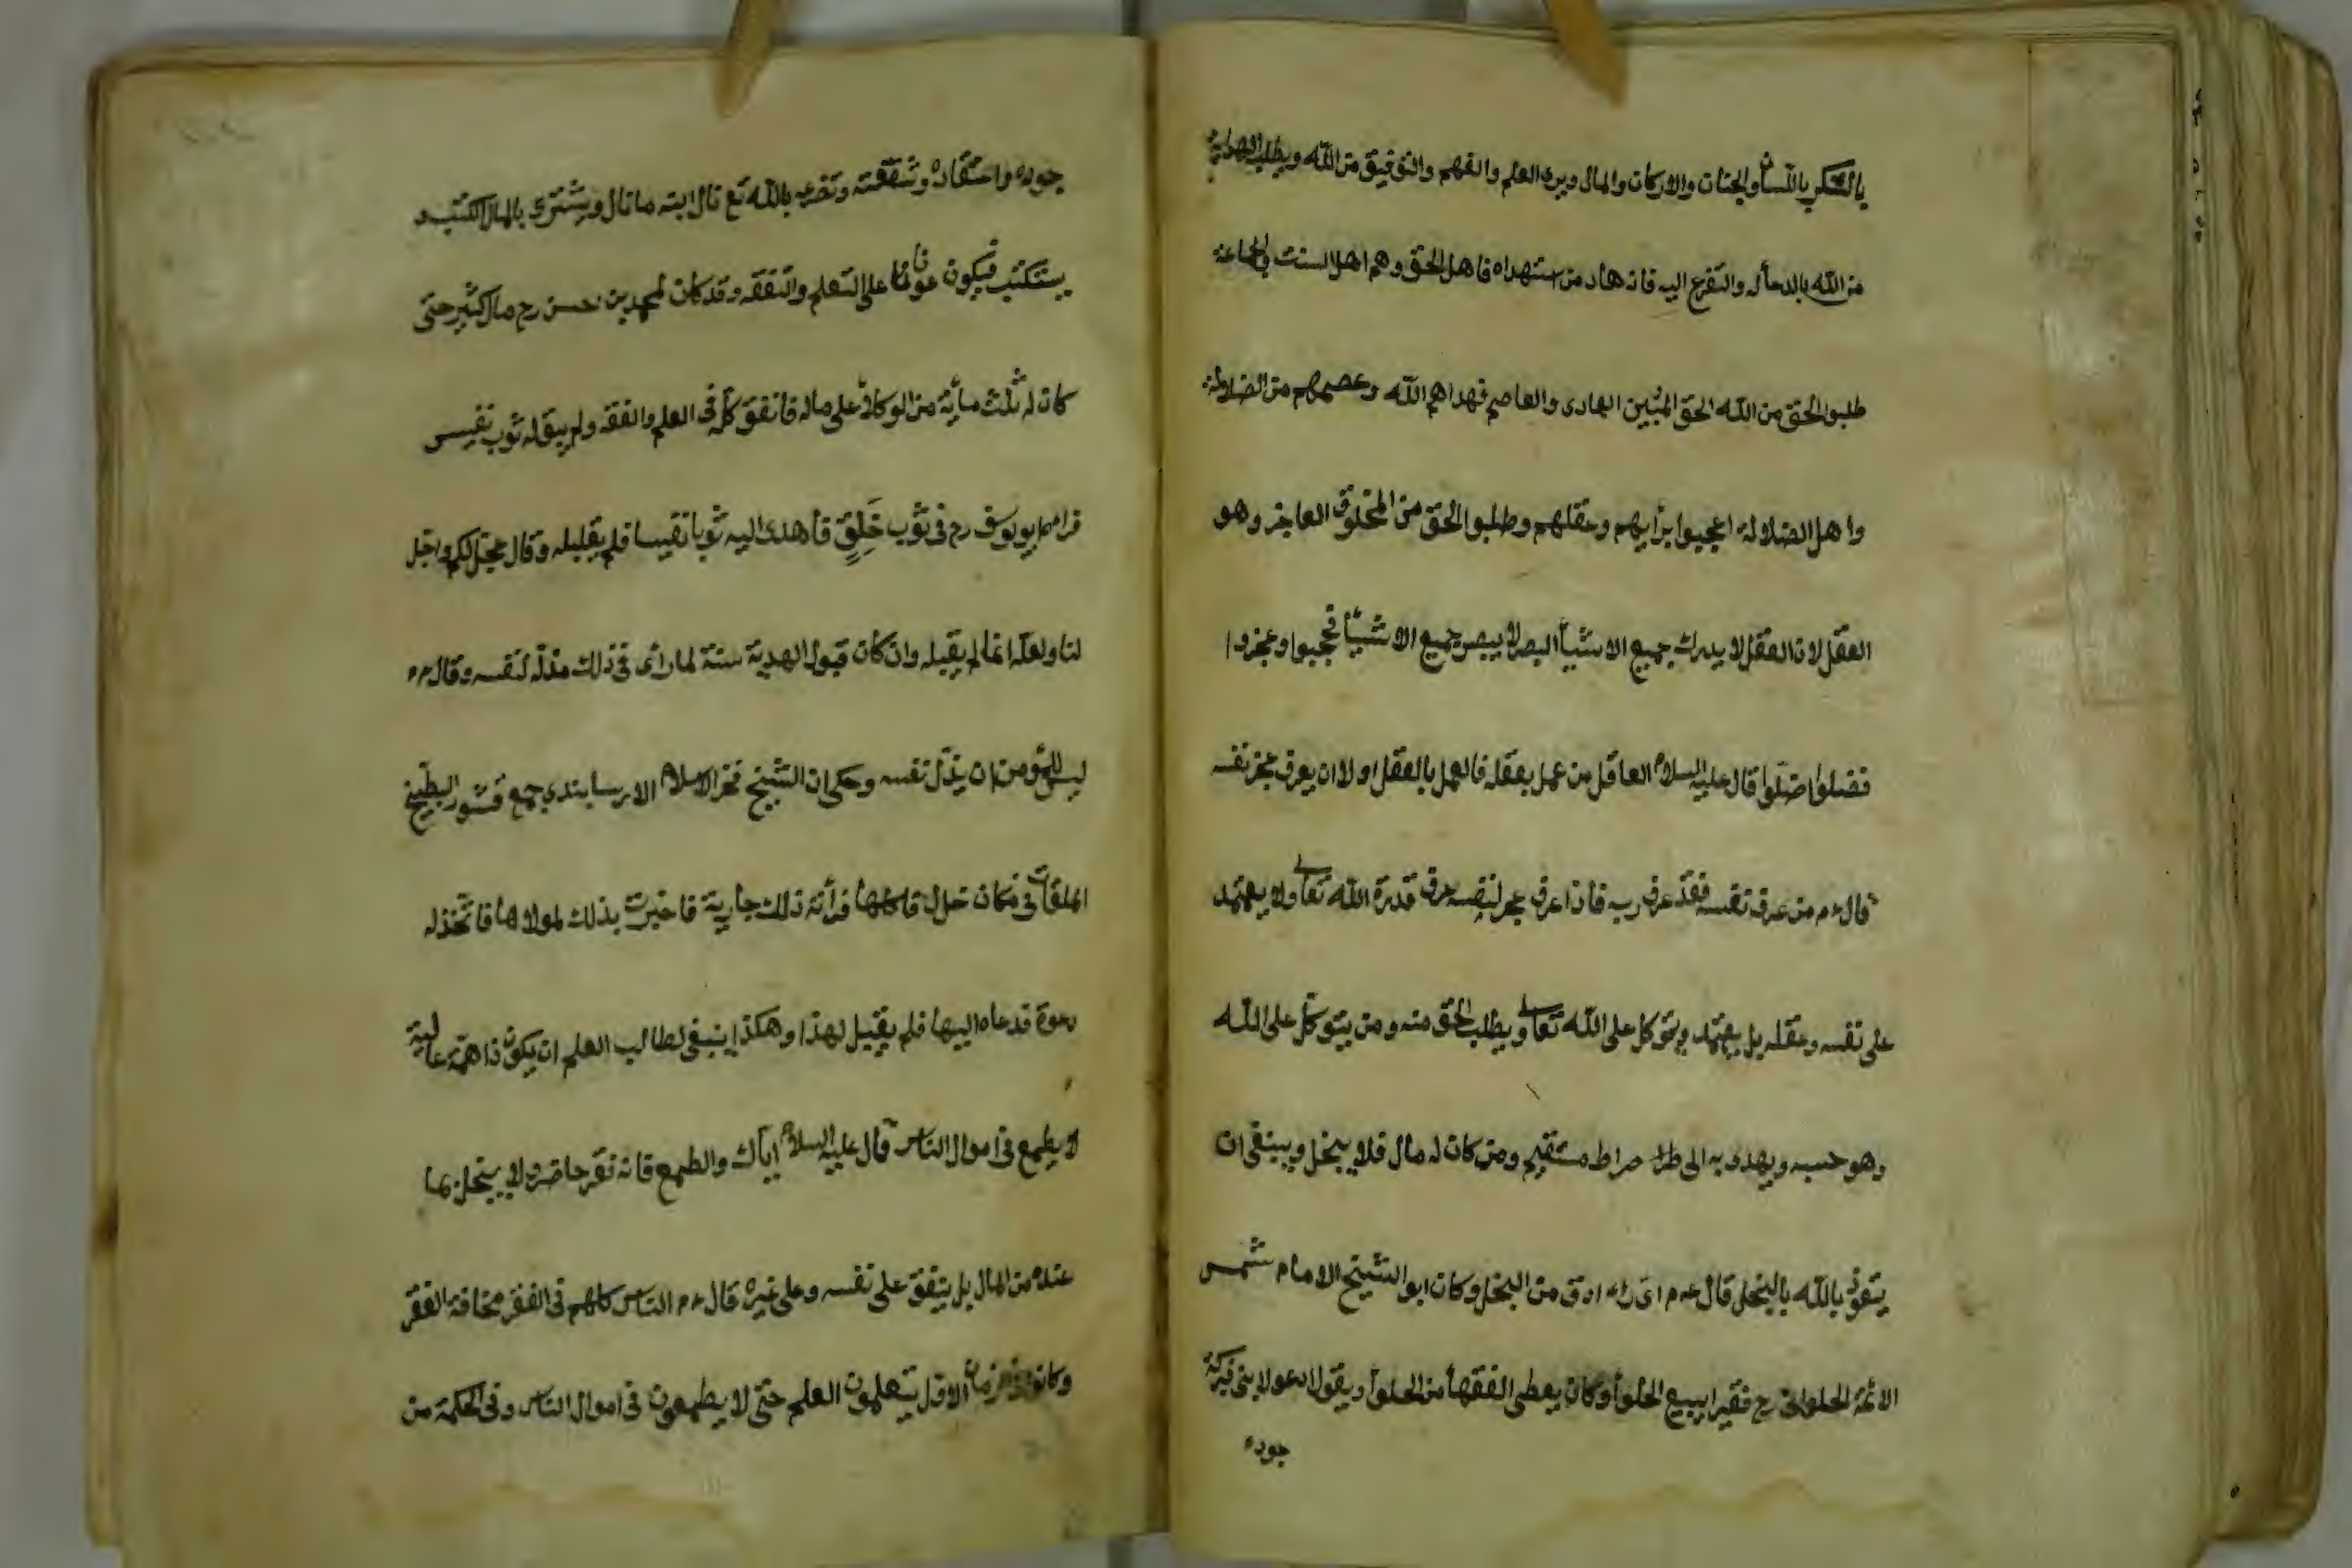 بالشكر باللسان والجنان والاركان والمال ويرى العلم والفهم والتوفيق من الله ويطلب الهداية
من الله بالدعاء والتضرع اليه فانه هاد من استهداه فاهل الحق وهم اهل السنت والجماعة
طلبوا الحق من الله الحق المبين الهادى والعاصم فهداهم الله وعصمهم من الضلالة
واهل الضلالة اعجبوا برأيهم وعقلهم وطلبوا الحق من المخلوق العاجز وهو
العقل لان العقل لا يدرك جميع الاشيأ البصر لا يبصر جميع الاشيأ فحجبوا وعجزوا
فضلوا اضلوا قال عليه السلام العاقل من عمل بعقله فالعمل بالعقل اولا ان يعرف عجز نفسه
قال عم من عرف نفسه فقد عرف ربه فاذا عرف عجز لنفسه عرف قدرة الله تعالى ولا يعتمد
على نفسه وعقله بل يعتمد ويتوكل على الله تعالى ويطلب الحق منه ومن يتوكل على الله
وهو حسبه ويهدى به الى صراط مستقيم ومن كان له مال فلا يبخل وينبغى ان
يتعوذ بالله بالبخل قال عم اى داء ادوى من البخل وكان ابو الشيخ الامام شمس
الائمة الحلوانى رح فقيرا يبيع الحلوأ وكان يعطى الفقهأ من الحلوأ ويقول ادعو لابنى فبركة
جوده
جوده واعتقاده وشفقته وتضرعه بالله تع نال ابنه ما نال ويشترى بالمال الكتب و
يستكتب فيكون عونا على التعلم والتفقه وقد كان لمحمد بن حسن رح مال كثير حتى
كان له ثلث مأية من الوكلأ على ماله فانفق كله فى العلم والفقه ولم يبق له ثوب نفيس
فراه ابو يوسف رح فى ثوب خلق فاهدى اليه ثوبا نفيسا فلم يقبله وقال عجل لكم واجل
لنا ولعله انما لم يقبله وان كان قبول الهدية سنة لما راى فى ذلك مذلة لنفسه وقال عم
ليس للمؤمن ان يذل نفسه وحكى ان الشيخ فخر الاسلام الارسابندى جمع قشور البطيخ
الملقات فى مكان خال فاكلها فرأته ذلك جارية فاخبرت بذلك لمولاها فاتخذ له
دعوة فدعاه اليها فلم يقبل لهذا وهكذا ينبغى لطالب العلم ان يكون ذا همة عالية
لا يطمع فى اموال الناس قال عليه السلام اياك والطمع فانه فقر حاضر ولا يبخل بما
عنده من المال بل ينفق على نفسه وعلى غيره قال عم الناس كلهم فى الفقر مخافة الفقر
وكانوا فى زمان الاول يتعلمون العلم حتى لا يطمعون فى اموال الناس وفى الحكمة من